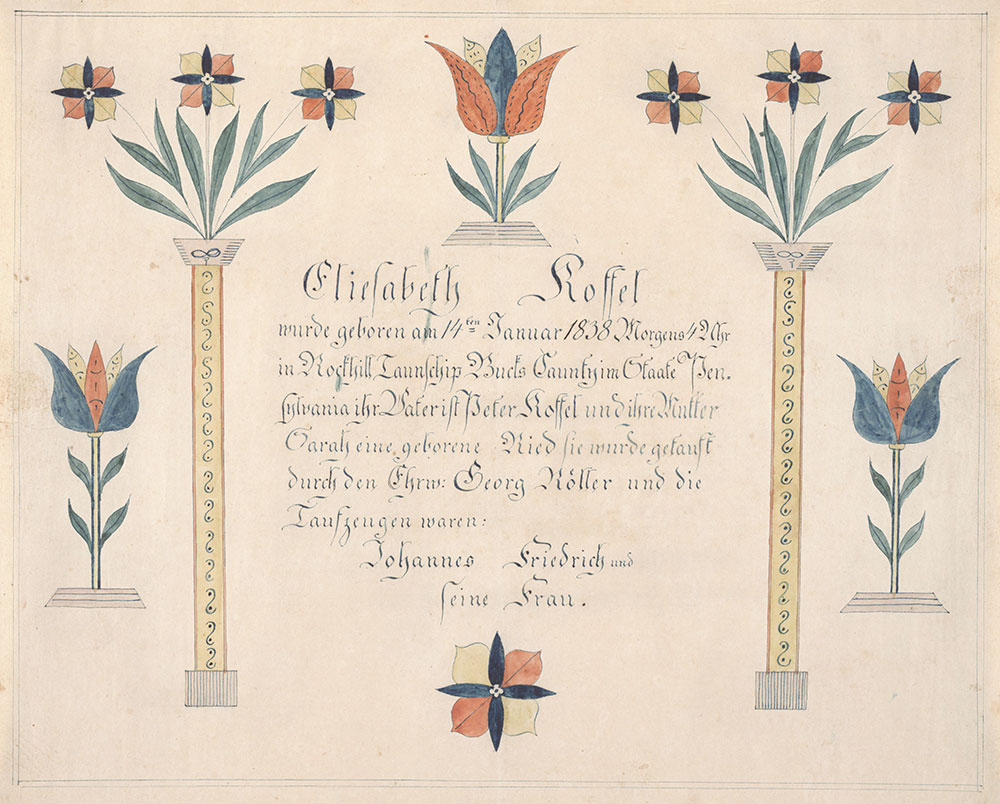 Eliesabeth Koffel
wurde geboren am 14ten Januar 1838 Morgens 4 Uhr
in Rockhill Taunschip Bucks Caunty im Staate Pen-
sylvania ihr Vater ist Peter Koffel und ihre Mutter
Sarah eine geborene Ried sie wurde getauft
durch den Ehrw: Georg Röller und die
Taufzeugen waren:
Johannes Friedrich und
seine Frau.